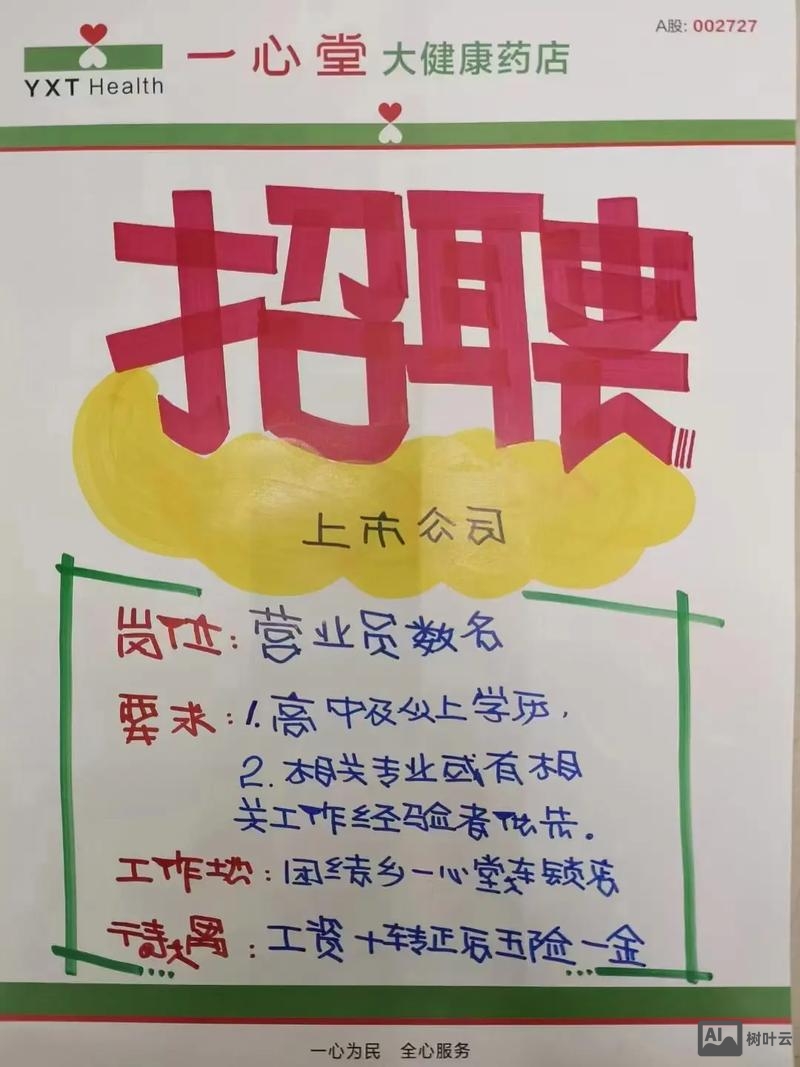 A股: 002727
YXT Health
一心堂 大健康药店
招聘
上市公司
岗位: 营业员数名
要求: 1. 高中及以上学历,
2. 相关专业或有相
关工作经验者优先。
工作地: 团结乡一心堂连锁店
待遇: 工资+转正后五险一金
一心为民 全心服务
AI 树叶云